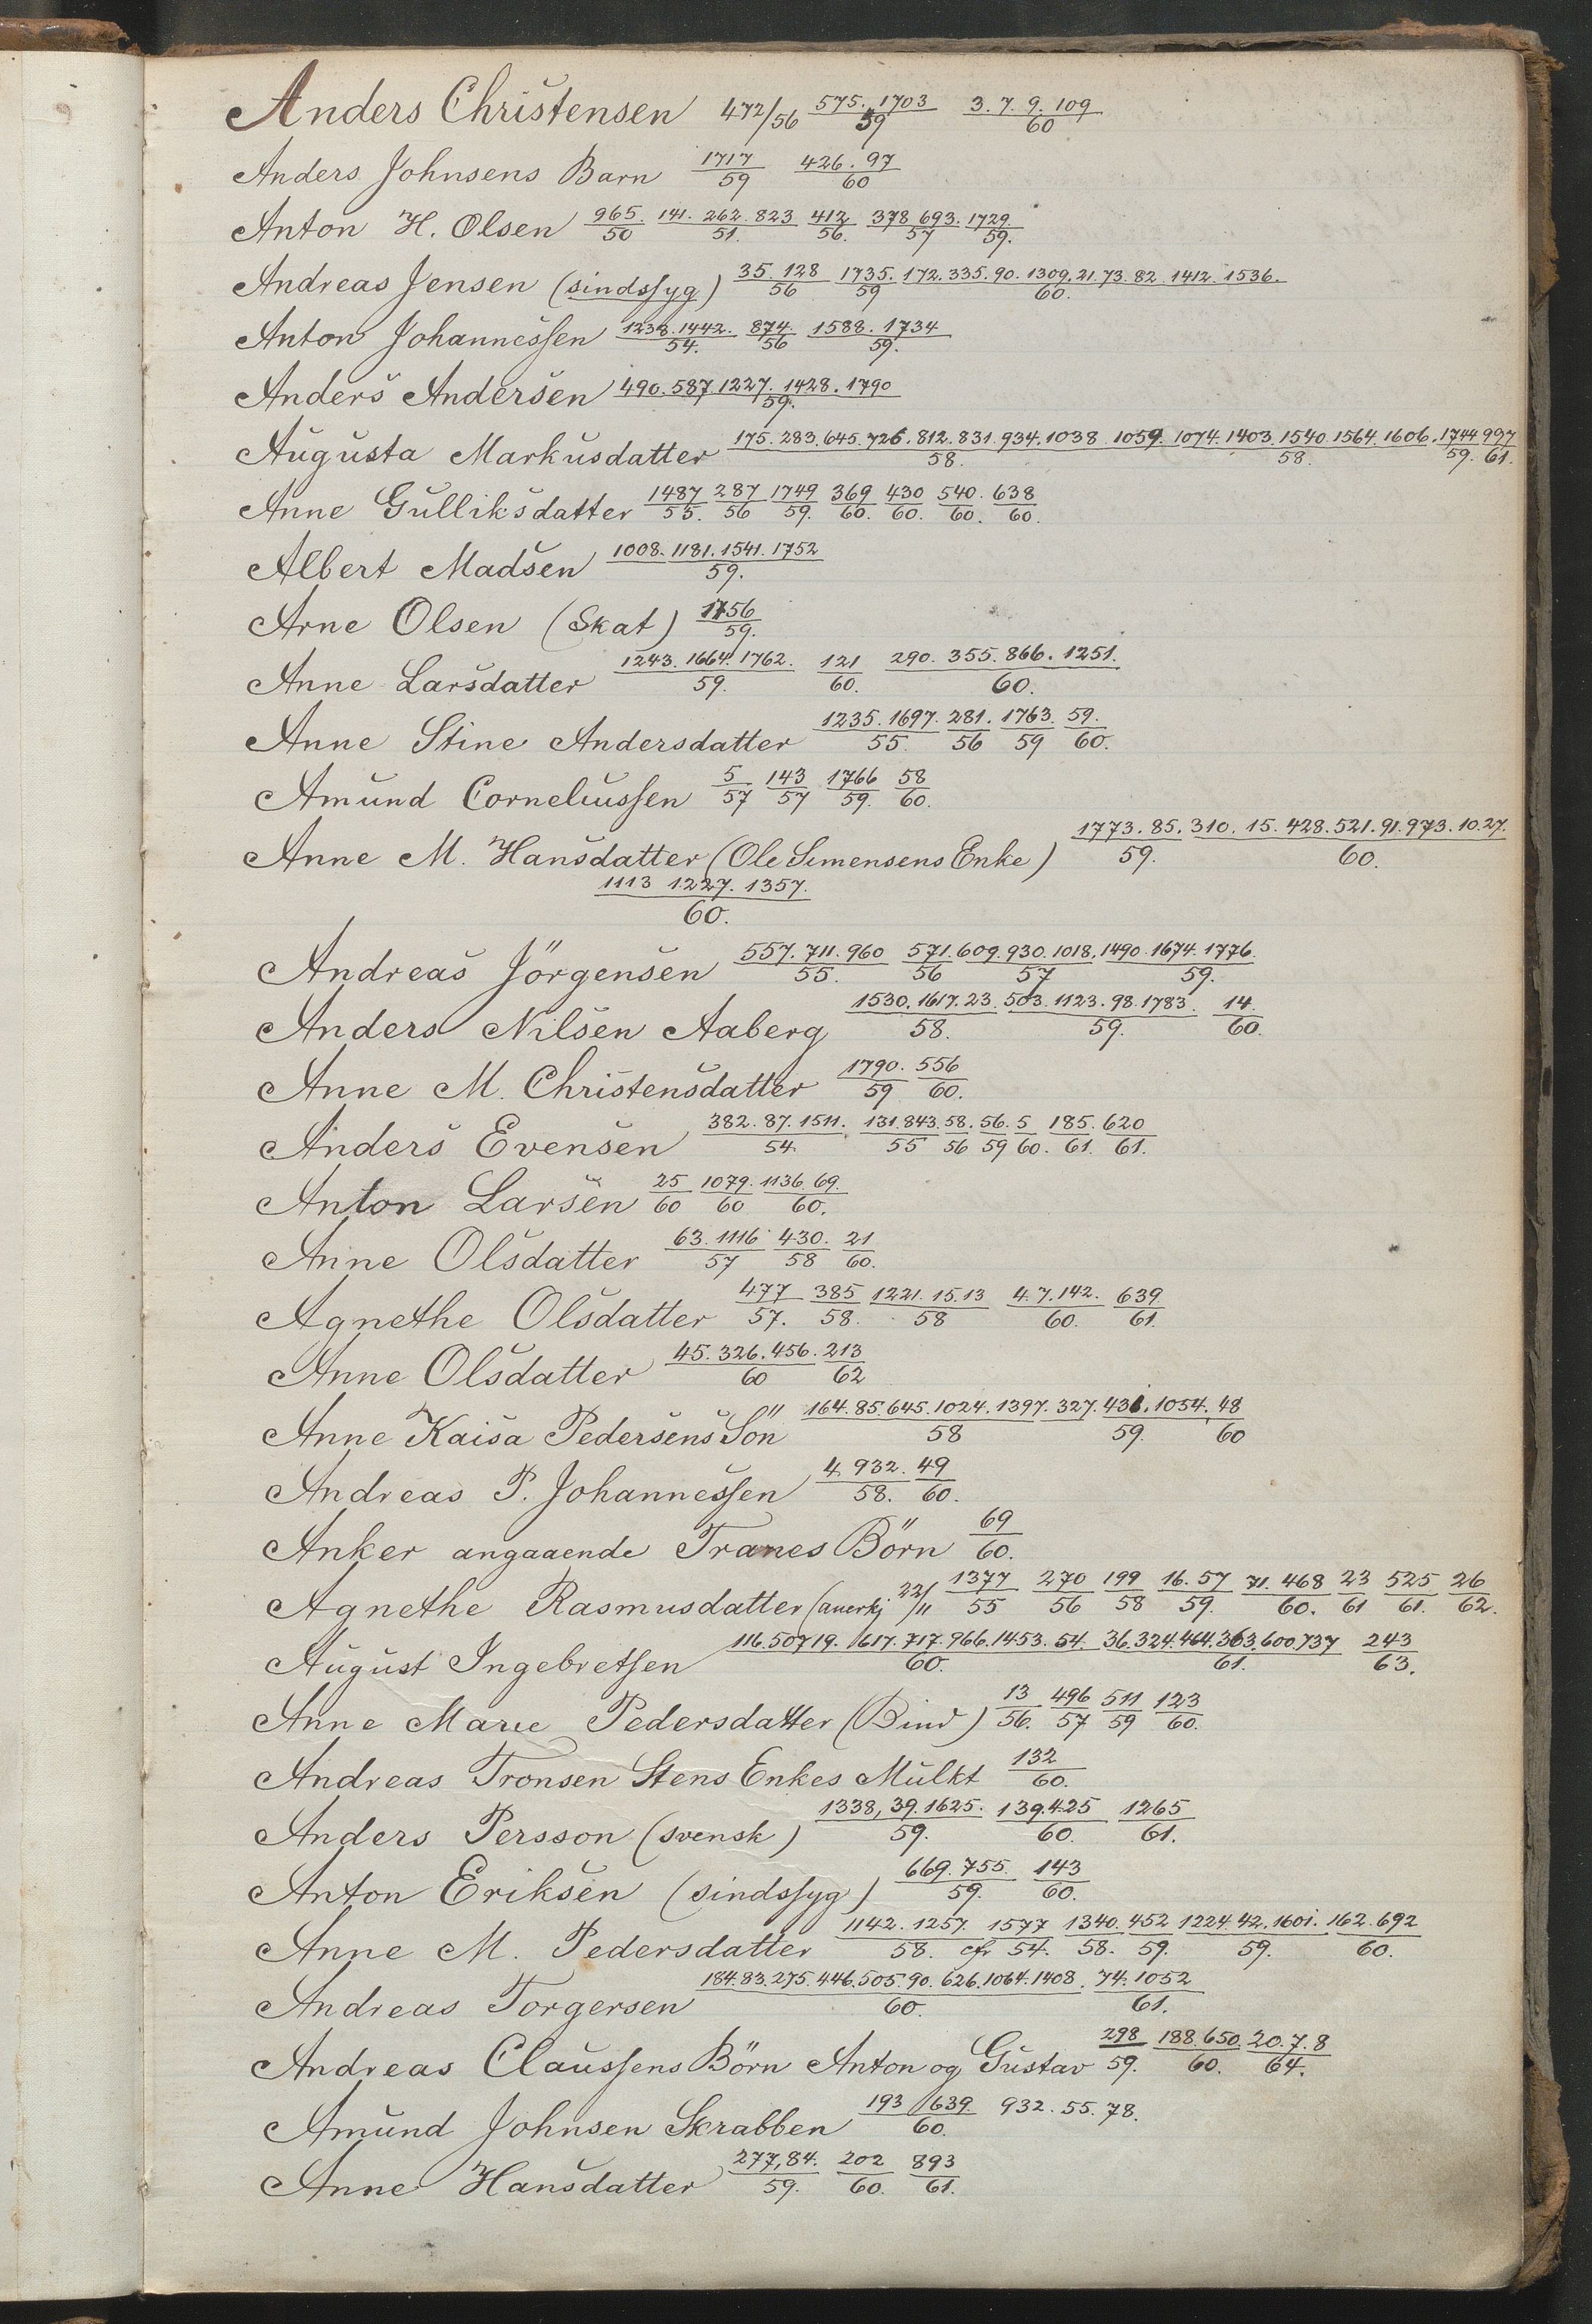 Anders Christensen 472/56 575. 1703/59 3. 7. 9. 109/60
Anders Johnsens Barn 1717/59 426. 97/60
Anton H. Olsen 965./50 141. 262. 823/51. 412/56. 378 693./57 1729/59.
Andreas Jensen (sindssyg) 35. 128/56 1735./59 172. 335. 90. 1309. 21. 73. 82. 1412. 1536./60.
Anton Johannessen 1238. 1442./54. 874./56 1588. 1734/59.
Anders Andersen 490. 587. 1227. 1428. 1790/59.
Augusta Markusdatter 175. 283. 645. 726. 812. 831. 934. 1038. 1059./58. 1074. 1403. 1540. 1564. 1606./58. 1744/59. 997/61.
Anne Gulliksdatter 1487/55. 287/56 1749/59. 369/60. 430/60. 540./60. 638/60.
Albert Madsen 1008. 1181. 1541. 1752/59.
Arne Olsen (Skat) 1756/59.
Anne Larsdatter 1243. 1664. 1762./59. 121/60. 290. 355. 866. 1251./60.
Anne Stine Andersdatter 1235. 1697./55. 281./56 1763./59 59./60.
Amund Corneliussen 5/57 143/57 1766/59. 58/60.
Anne M. Hansdatter (Ole Simensens Enke) 1773. 85./59. 310. 15. 428. 521. 91. 973. 10.27./60.
1113 1227. 1357./60.
Andreas Jörgensen 557. 711. 960/55. 571./56 609. 930. 1018./57 1490. 1674. 1776./59.
Anders Nilsen Aaberg 1530. 1617. 23./58. 503. 1123. 98. 1783./59. 14./60.
Anne M. Christensdatter 1790./59 556/60.
Anders Evensen 382. 87. 1511./54. 131. 843./55 58./56 56./59 5/60. 185./61. 620/61.
Anton Larsen 25/60 1079./60 1136. 69./60.
Anne Olsdatter 63. 1116/57 430./58 21/60.
Agnethe Olsdatter 477/57. 385/58. 1221. 15. 13/58 4. 7. 142./60. 639/61.
Anne Olsdatter 45. 326. 456./60 213/62
Anne Kaisa Pedersens Sön 164. 85. 645. 1024. 1397./58 327. 431. 1054./59. 48/60
Andreas P. Johannessen 4. 932./58. 49/60.
Anker angaaende Tranes Börn 69/60.
Agnethe Rasmusdatter (anerkj 22/11 1377/55 270/56 199/58 16. 57/59. 71. 468/60. 23/61 525/61. 26/62.
August Ingebretsen 116. 507 19. 1617. 717. 966. 1453. 54./60. 36. 324. 464. 363. 600. 737/61. 243/63.
Anne Marie Pedersdatter (Bind) 13/56. 496/57 511/59 123/60.
Andreas Tronsen Stens Enkes Mulkt 132/60.
Anders Persson (svensk) 1338, 39. 1625./59. 139. 425/60. 1265/61.
Anton Eriksen (sindssyg) 669. 755./59. 143/60.
Anne M. Pedersdatter 1142. 1257./58. cfr 1577/54. 1340./58. 452/59. 1224. 42. 1601./59. 162. 692/60.
Andreas Torgersen 184. 83. 275. 446. 505. 90. 626. 1064. 1408./60. 74. 1052/61.
Andreas Claussens Börn Anton og Gustav 298/59. 188. 650./60. 20. 7. 8/64.
Amund Johnsen Skrabben 193 1639./60. 932. 55. 78.
Anne Hansdatter 277, 84./59. 202/60. 893/61.